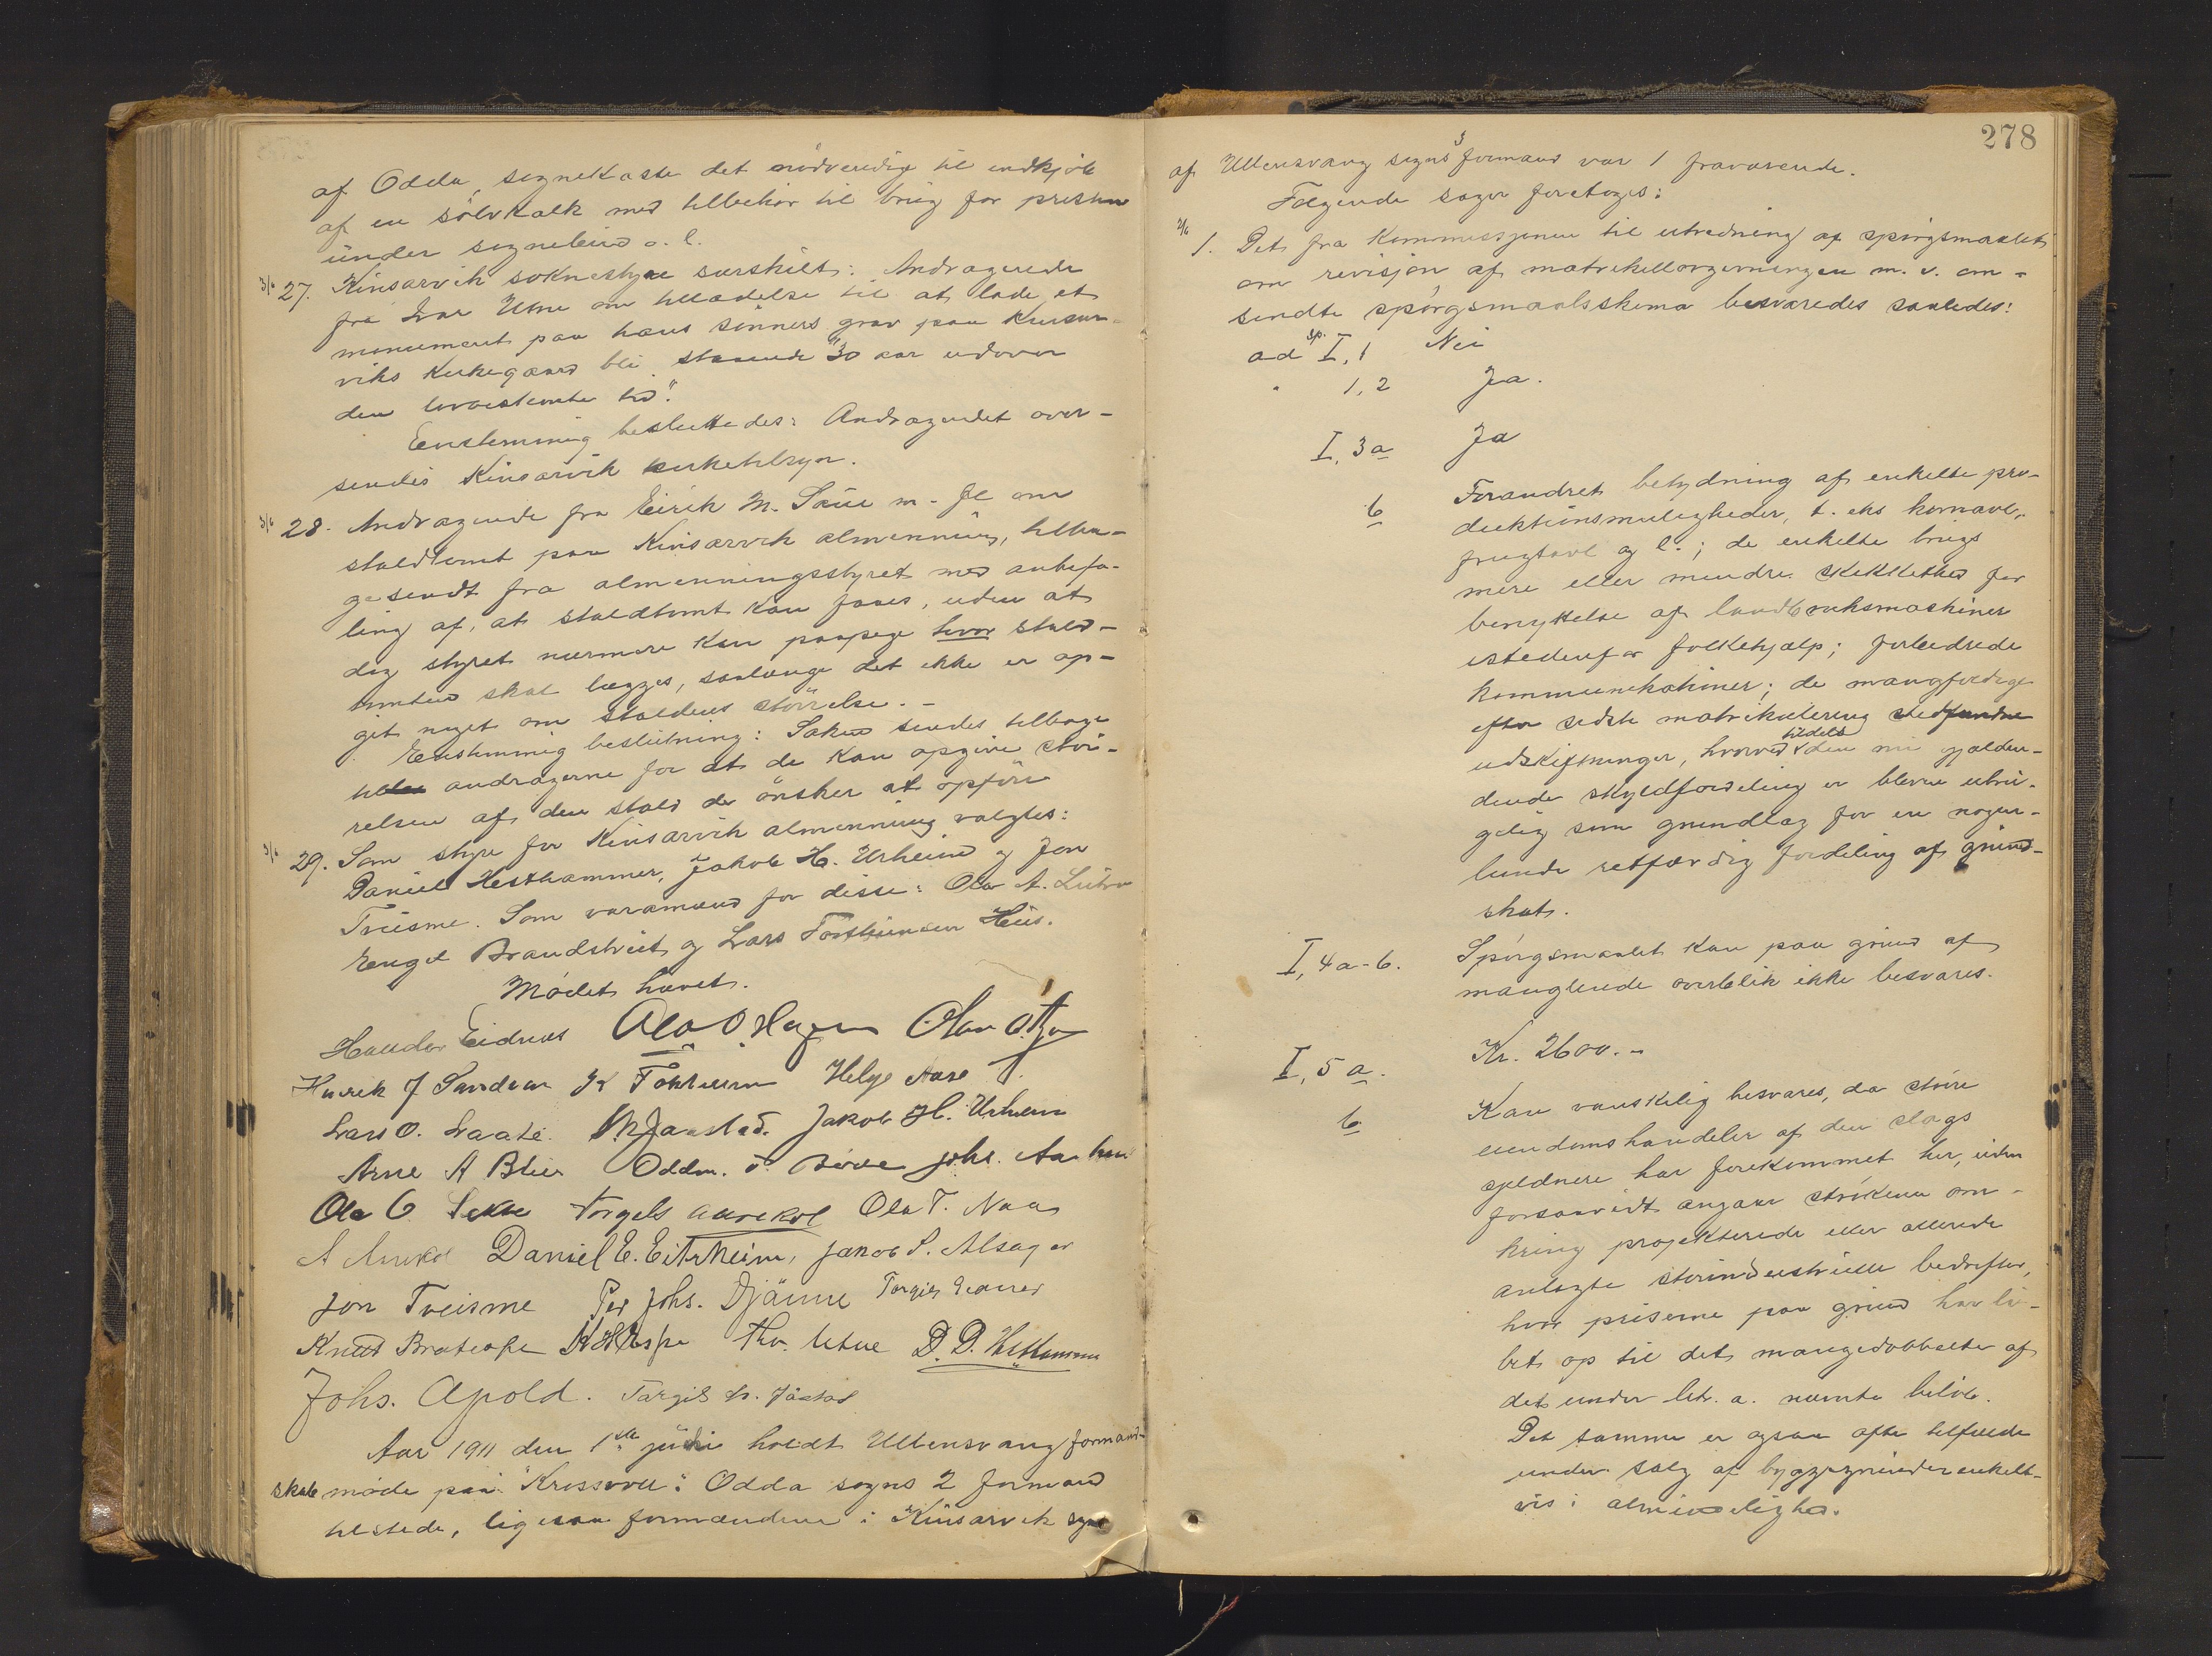 af Odda sognekasse det nödvendige til indkjöb
af en sölvkalk med tilbehör til brug for presten
under sognebud o. l.
3/6 27. Kinsarvik soknestyre særskilt: Andragende
fra Ivar Utne om tilladelse til at lade et
monument paa hans sönners grav paa Kinsar-
viks kirkegaard bli staaende "30 aar udover
den lovbestemte tid".
Enstemmig besluttedes: Andragendet over-
sendes Kinsarvik kirketilsyn.
3/6 28. Andragende fra Eirik M. Säue m. fl om
staldtomt paa Kinsarvik almenning, tilba-
gesendt fra almenningsstyret med anbefa-
ling af, at staldtomt kan faaes, uden at
dog styret nærmere kan paapege hvor stald-
tomten skal lægges, saalænge det ikke er op-
git noget om staldens störrelse. -
Enstemmig beslutning: Saken sendes tilbage
til andragerne for at de kan opgive stör-
relsen af den stald de önsker at opföre
3/6 29. Som styre for Kinsarvik almenning valgtes:
Daniel Hesthammer, Jakob H. Urheim og Jon
Tveisme. Som varamænd for disse: Ola A. Lutro
Engel Brandstveit og Lars Torsteinsen Hus.
Mödet hævet.
Haldor Eidnes Ola O. Hagen Olav
Henrik J Sandven K Tokheim Helge Aase
Lars O. Laate. M Jaastad. Jakob H. Urheim
Arne A Bleie Oddm. O. Böve Johs. Aarhus
Ola O. Sekse Torgels Aarekol Ola T. Naa
A Daniel E. Eitrheim, Jakob S. Alsager
Jon Tveisme Per Johs. Djönne Torgils
Knut Bratespe K H Espe Thv. Utne D. D. Hesthammer
Johs. Apold. Torgils Jåstad
Aar 1911 den 1ste juni holdt Ullensvang formand-
skab möde paa "Krossvoll". Odda sogns 2 formænd
tilstede, ligesaa formændene i Kinsarvik sogn
278
af Ullensvang sogns 3 formænd var 1 fraværende.
Fölgende sager foretoges:
2/6 1. Det fra Kommissjonen til utredning af spörgsmaalet
om revisjon af matrikellovgivningen m. v. om-
sendte spörgsmaalsskema besvaredes saaledes:
ad sp. I, 1 Nei
" 1, 2 Ja.
I, 3 a Ja
b Forandret betydning af enkelte pro-
duktionsmuligheder, t. eks kornavl,
frugtavl og l.; de enkelte brugs
mere eller mindre skikkethed for
benyttelse af landbruksmaskiner
istedenfor folkehjælp; forbedrede
kommunikationer; de mangfoldige
efter sidste matrikulering stedfundne
udskiftninger, hvorved tildels den nu gjælden-
dende skyldfordeling er bleven ubru-
gelig som grundlag for en nogen-
lunde retfærdig fordeling af grund-
skat.
I, 4 a-b. Spörgsmaalet kan paa grund af
manglende overblik ikke besvares.
I, 5 a. Kr. 2600.-
b Kan vanskelig besvares, da större
eiendomshandeler af den slags
sjeldnere har forekommet her, uden
forsaavidt angaar strökene om-
kring projekterede eller allerede
anlagte storindustrielle bedrifter,
hvor priserne paa grund har lö-
bet op til det mangedobbelte af
det under litr. a. nævnte belöb.
Det samme er ogsaa ofte tilfælde
under salg af byggegrunder enkelt-
vis i almindelighed.